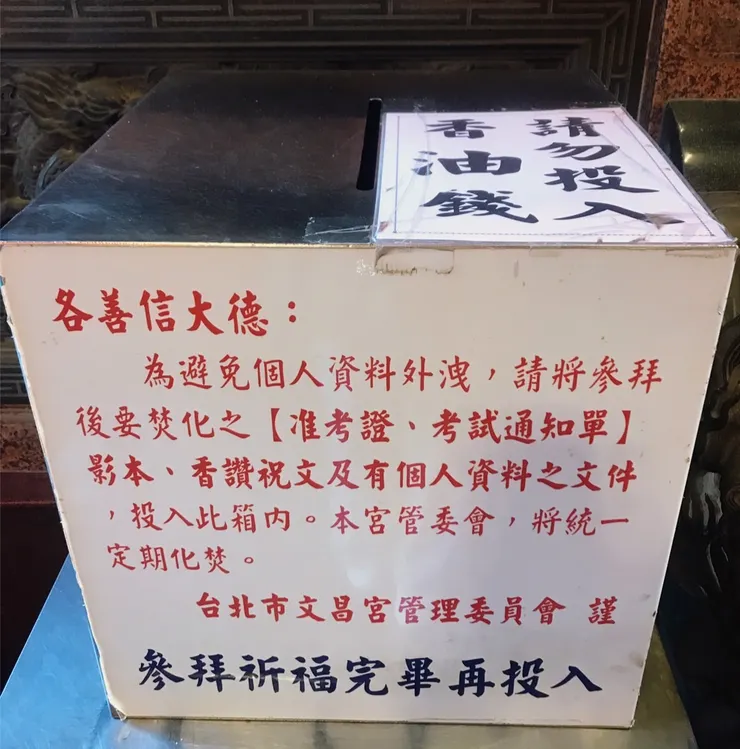 請勿投入
香油錢
各善信大德：
為避免個人資料外洩，請將參拜
後要焚化之【准考證、考試通知單】
影本、香讚祝文及有個人資料之文件
，投入此箱內。本宮管委會，將統一
定期化焚。
台北市文昌宮管理委員會 謹
參拜祈福完畢再投入